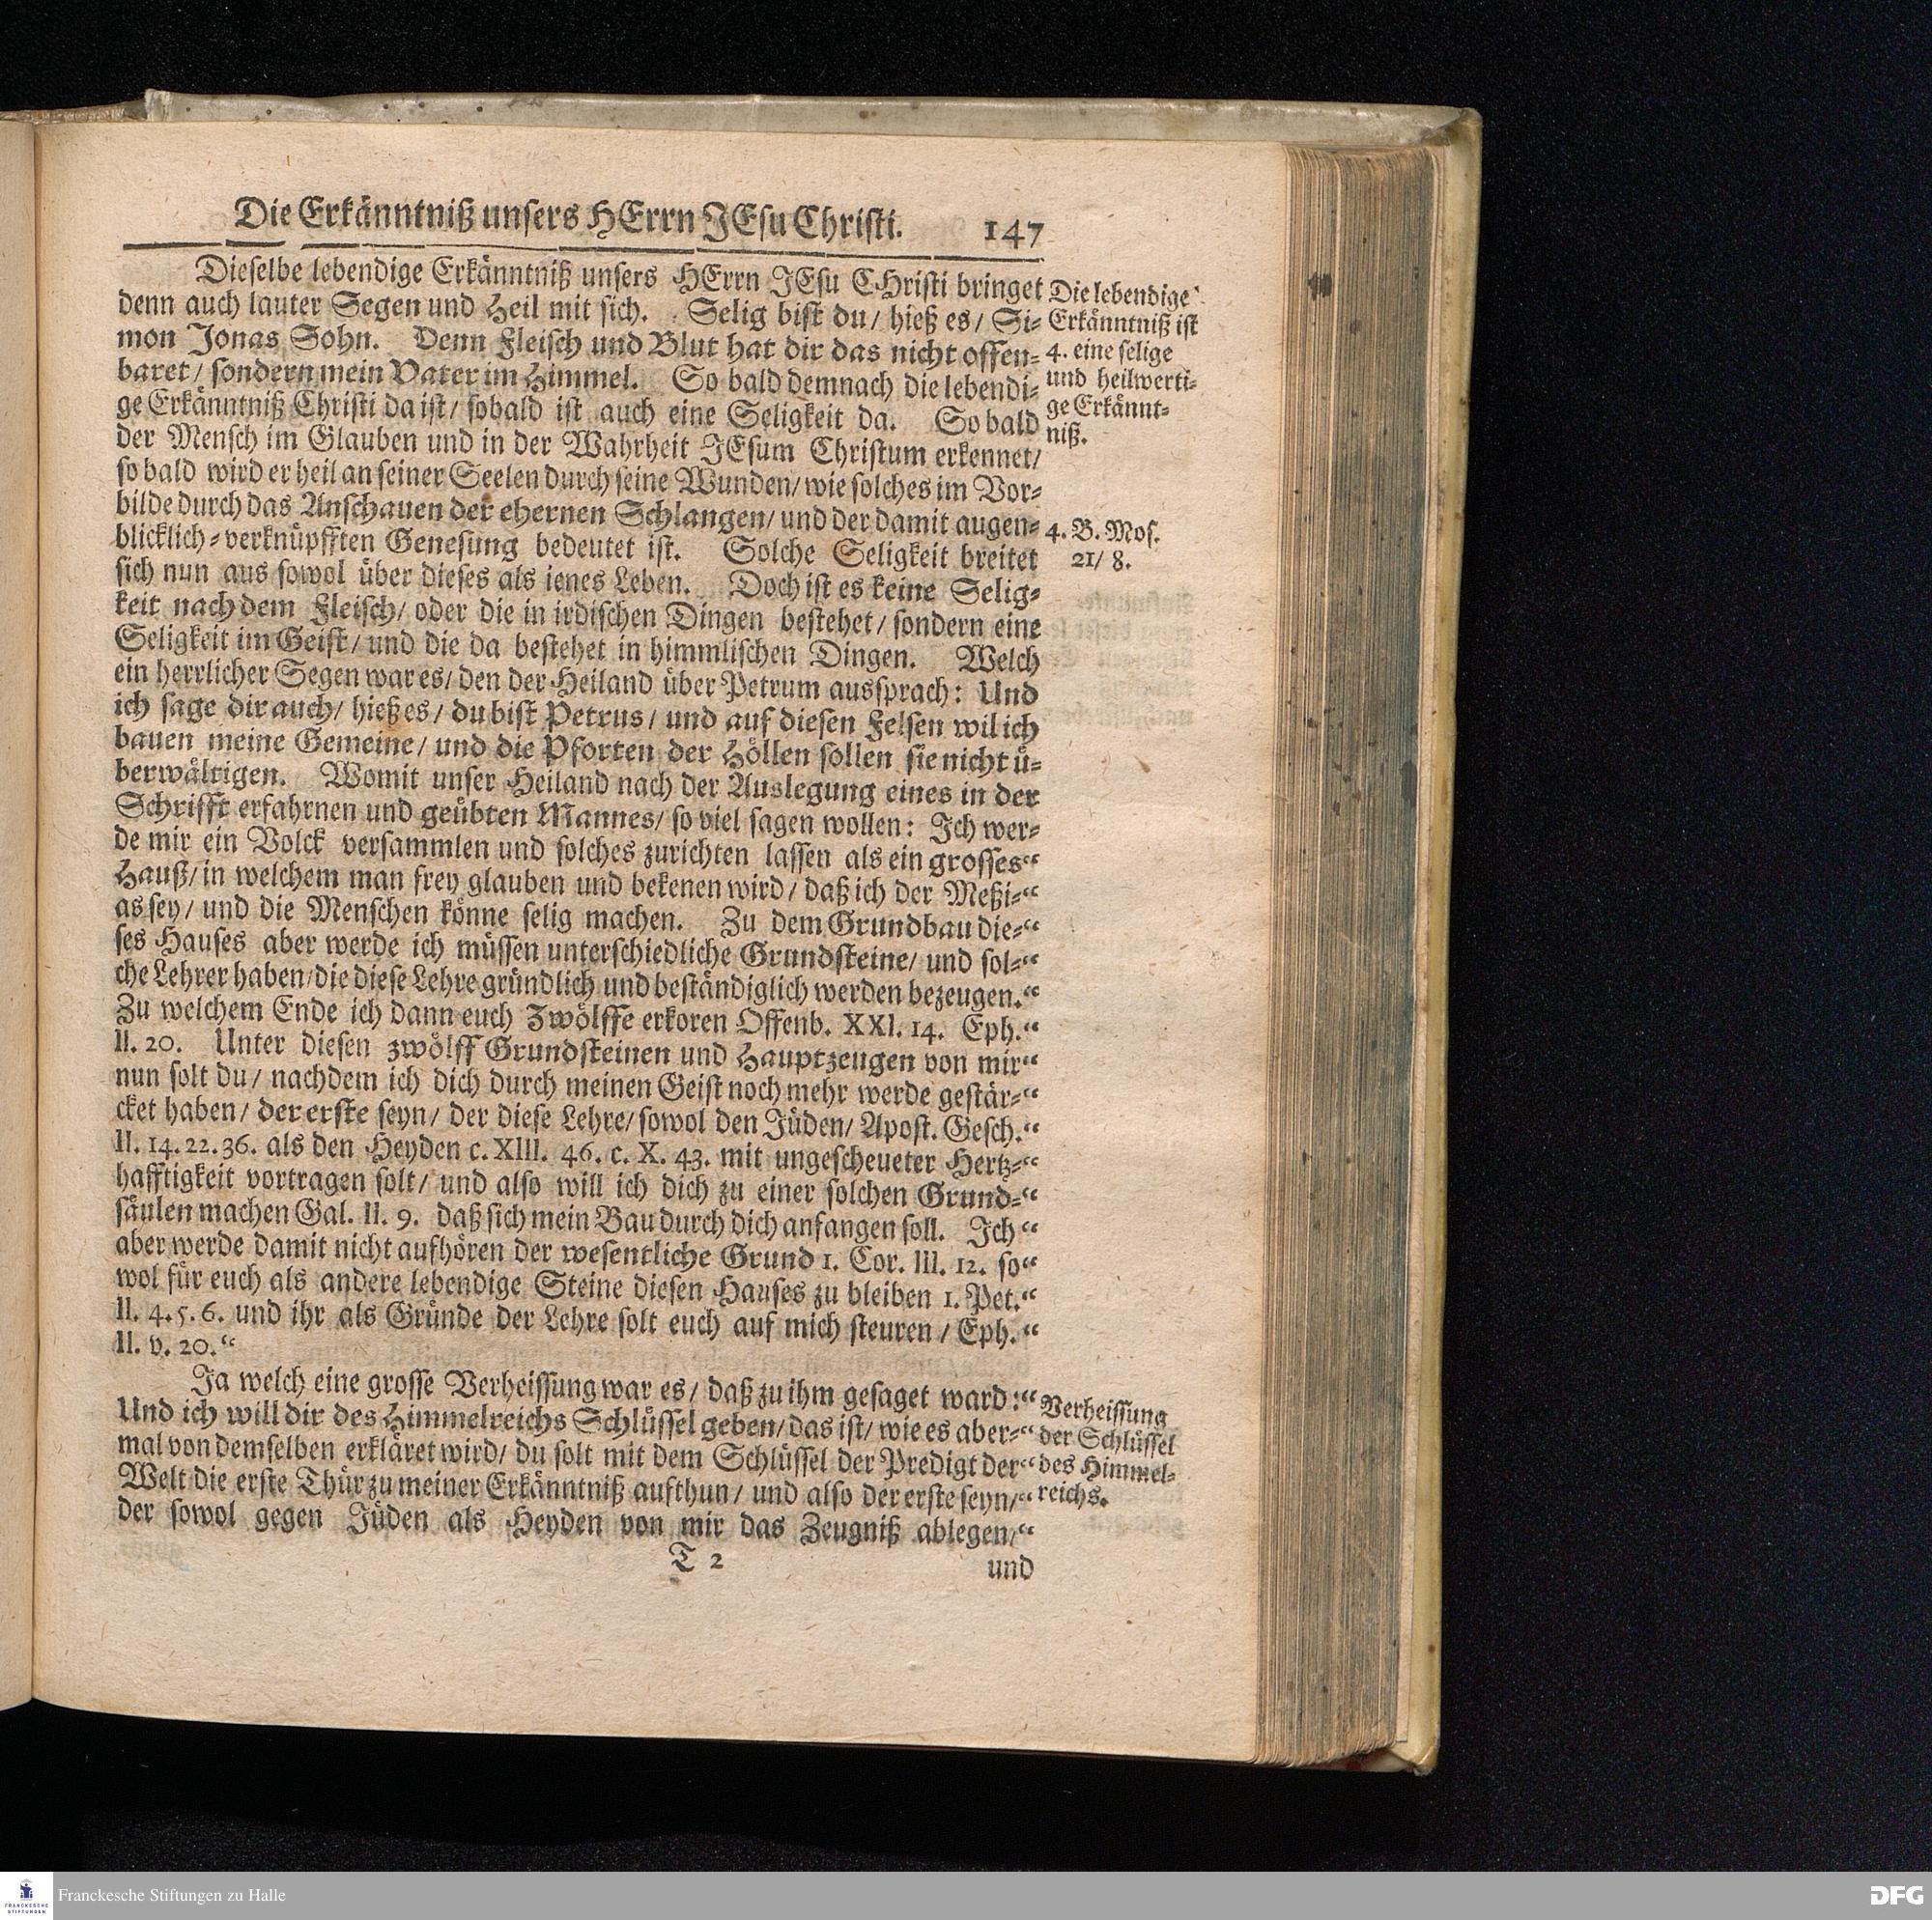 Die Erkänntniß unsers HErrn JEsu Christi. 147
Dieselbe lebendige Erkänntniß unsers HErrn JEsu CHristi bringet
denn auch lauter Segen und Heil mit sich. Selig bist du/ hieß es/ Si-
mon Jonas Sohn. Denn Fleisch und Blut hat dir das nicht offen-
baret/ sondern mein Vater im Himmel. So bald demnach die lebendi-
ge Erkänntniß Christi da ist/ sobald ist auch eine Seligkeit da. So bald
der Mensch im Glauben und in der Wahrheit JEsum Christum erkennet/
so bald wird er heil an seiner Seelen durch seine Wunden/ wie solches im Vor-
bilde durch das Anschauen der ehernen Schlangen/ und der damit augen-
blicklich-verknüpfften Genesung bedeutet ist. Solche Seligkeit breitet
sich nun aus sowol über dieses als ienes Leben. Doch ist es keine Selig-
keit nach dem Fleisch/ oder die in irdischen Dingen bestehet/ sondern eine
Seligkeit im Geist/ und die da bestehet in himmlischen Dingen. Welch
ein herrlicher Segen war es/ den der Heiland über Petrum aussprach: Und
ich sage dir auch/ hieß es/ du bist Petrus/ und auf diesen Felsen wil ich
bauen meine Gemeine/ und die Pforten der Höllen sollen sie nicht ü-
berwältigen. Womit unser Heiland nach der Auslegung eines in der
Schrifft erfahrnen und geübten Mannes/ so viel sagen wollen: Ich wer-
de mir ein Volck versammlen und solches zurichten lassen als ein grosses“
Hauß/ in welchem man frey glauben und bekenen wird/ daß ich der Meßi-“
as sey/ und die Menschen könne selig machen. Zu dem Grundbau die-“
ses Hauses aber werde ich müssen unterschiedliche Grundsteine/ und sol-“
che Lehrer haben/ die diese Lehre gründlich und beständiglich werden bezeugen.“
Zu welchem Ende ich dann euch Zwölffe erkoren Offenb. XXI. 14. Eph.“
II. 20. Unter diesen zwölff Grundsteinen und Hauptzeugen von mir“
nun solt du/ nachdem ich dich durch meinen Geist noch mehr werde gestär-“
cket haben/ der erste seyn/ der diese Lehre/ sowol den Jüden/ Apost. Gesch.“
II. 14. 22. 36. als den Heyden c. XIII. 46. c. X. 43. mit ungescheueter Hertz-“
hafftigkeit vortragen solt/ und also will ich dich zu einer solchen Grund-“
säulen machen Gal. II. 9. daß sich mein Bau durch dich anfangen soll. Ich“
aber werde damit nicht aufhören der wesentliche Grund 1. Cor. III. 12. so“
wol für euch als andere lebendige Steine diesen Hauses zu bleiben 1. Pet.“
II. 4. 5. 6. und ihr als Gründe der Lehre solt euch auf mich steuren/ Eph.“
II. v. 20.“
Ja welch eine grosse Verheissung war es/ daß zu ihm gesaget ward:“
Und ich will dir des Himmelreichs Schlüssel geben/ das ist/ wie es aber-“
mal von demselben erkläret wird/ du solt mit dem Schlüssel der Predigt der“
Welt die erste Thür zu meiner Erkänntniß aufthun/ und also der erste seyn/“
der sowol gegen Jüden als Heyden von mir das Zeugniß ablegen/“
T 2 und
Die lebendige
Erkänntniß ist
4. eine selige
und heilwerti-
ge Erkännt-
niß.
4. B. Mos.
21/ 8.
Verheissung
der Schlüssel
des Himmel-
reichs.
FRANCKESCHE
STIFTUNGEN
Franckesche Stiftungen zu Halle
DFG